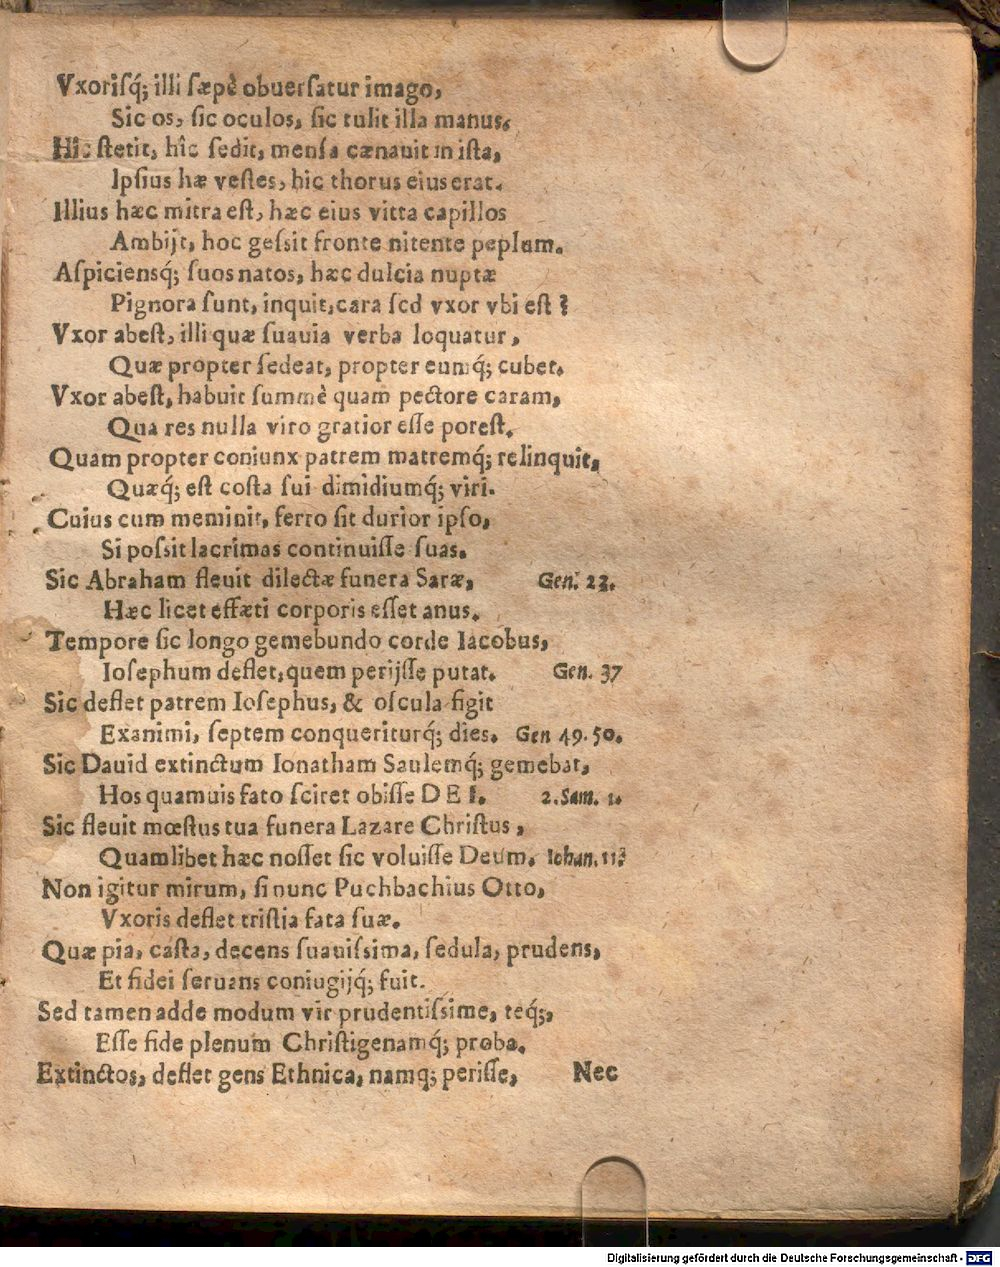 Vxoriſq́; illi ſæpè obuerſatur imago,
Sic os, ſic oculos, ſic tulit illa manus.
Hîc ſtetit, hîc ſedit, menſa cænauit in iſta,
Ipſius hæ veſtes, hic thorus eius erat.
Illius hæc mitra eſt, hæc eius vitta capillos
Ambijt, hoc geſsit fronte nitente peplum.
Aſpiciensq́; ſuos natos, hæc dulcia nuptæ
Pignora ſunt, inquit, cara ſed vxor vbi est?
Vxor abeſt, illi quæ ſuauia verba loquatur,
Quæ propter ſedeat, propter eumq́; cubet.
Vxor abeſt, habuit ſummè quam pectore caram,
Qua res nulla viro gratior eſſe poteſt.
Quam propter coniunx patrem matremq́; relinquit,
Quæq́; est coſta ſui dimidiumq́; viri.
Cuius cum meminit, ferro ſit durior ipſo,
Si poſsit lacrimas continuiſſe ſuas.
Sic Abraham fleuit dilectæ funera Saræ, Gen. 23.
Hæc licet effæti corporis eſſet anus.
Tempore ſic longo gemebundo corde Iacobus,
Ioſephum deflet, quem perijſſe putat. Gen. 37
Sic deflet patrem Ioſephus, & oſcula figit
Exanimi, ſeptem conqueriturq́; dies. Gen 49. 50.
Sic Dauid extinctum Ionatham Saulemq́; gemebat,
Hos quamuis fato ſciret obiſſe DEI. 2. Sam. 1.
Sic fleuit mœſtus tua funera Lazare Chriſtus,
Quamlibet hæc noſſet ſic voluiſſe Deum. Iohan. 11.
Non igitur mirum, ſi nunc Puchbachius Otto,
Vxoris deflet triſtia fata ſuæ.
Quæ pia, caſta, decens ſuauiſsima, ſedula, prudens,
Et fidei ſeruans coniugijq́; fuit.
Sed tamen adde modum vir prudentiſsime, teq́;,
Eſſe fide plenum Chriſtigenamq́; proba.
Extinctos, deflet gens Ethnica, namq; periſſe, Nec
Digitalisierung gefördert durch die Deutsche Forschungsgemeinschaft - DFG